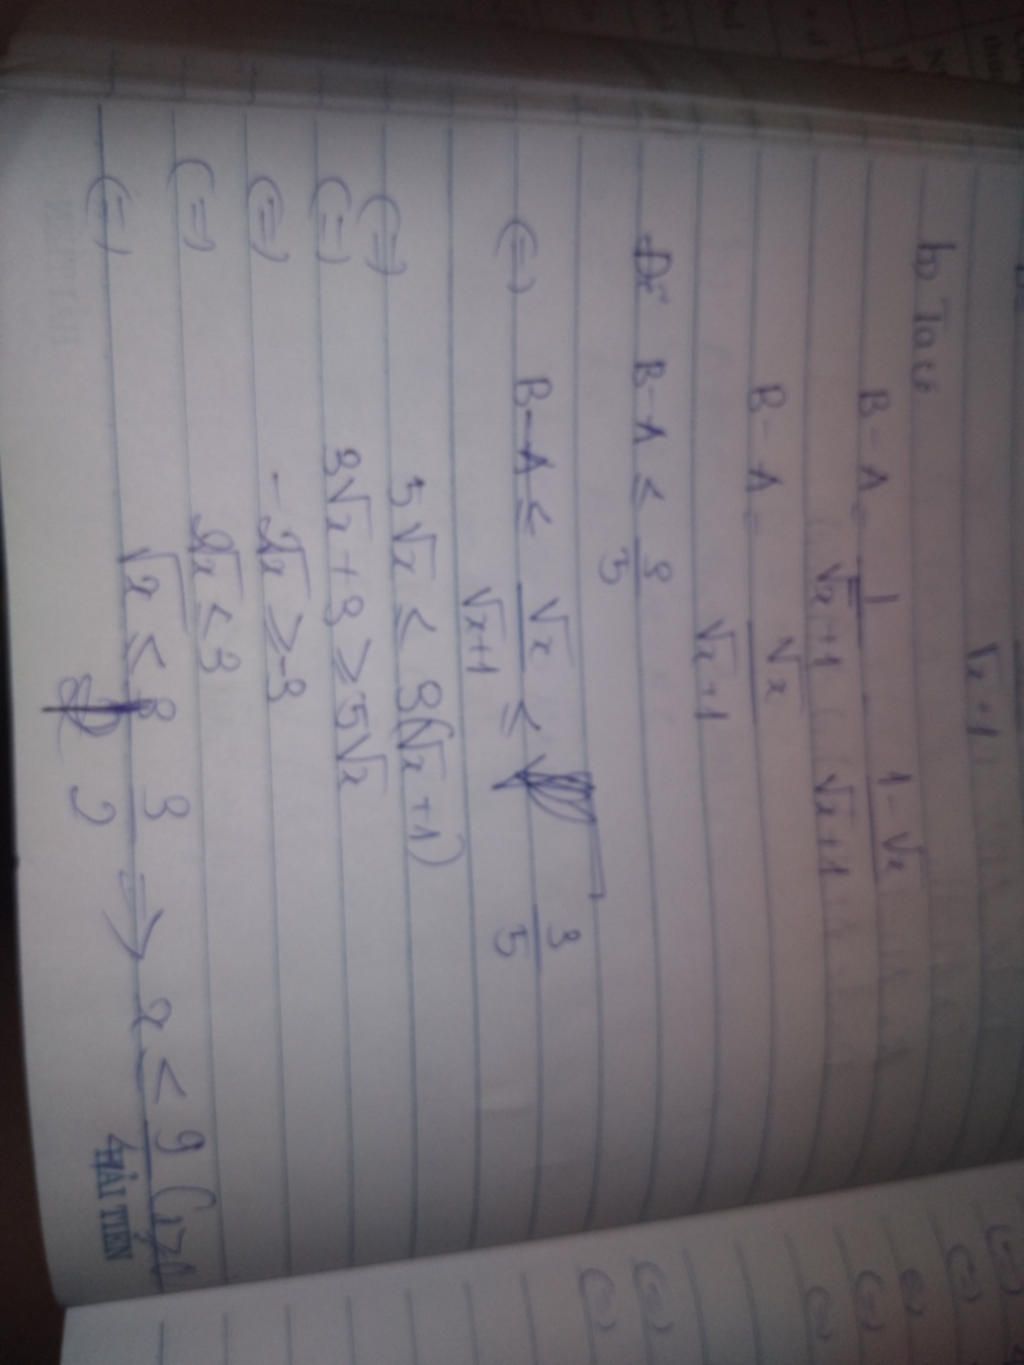 √x+1
b) Ta có
B-A = 1/(√x+1) - (1-√x)/(√x+1)
B-A = √x/(√x+1)
Để B-A ≤ 3/5
(=) B-A ≤ √x/(√x+1) ≤ 3/5
(=) 5√x ≤ 3(√x+1)
(=) 3√x+3 ≥ 5√x
(=) -2√x ≥ -3
(=) 2√x ≤ 3
(=) √x ≤ 3/2 => x ≤ 9/4
HẢI TIẾN